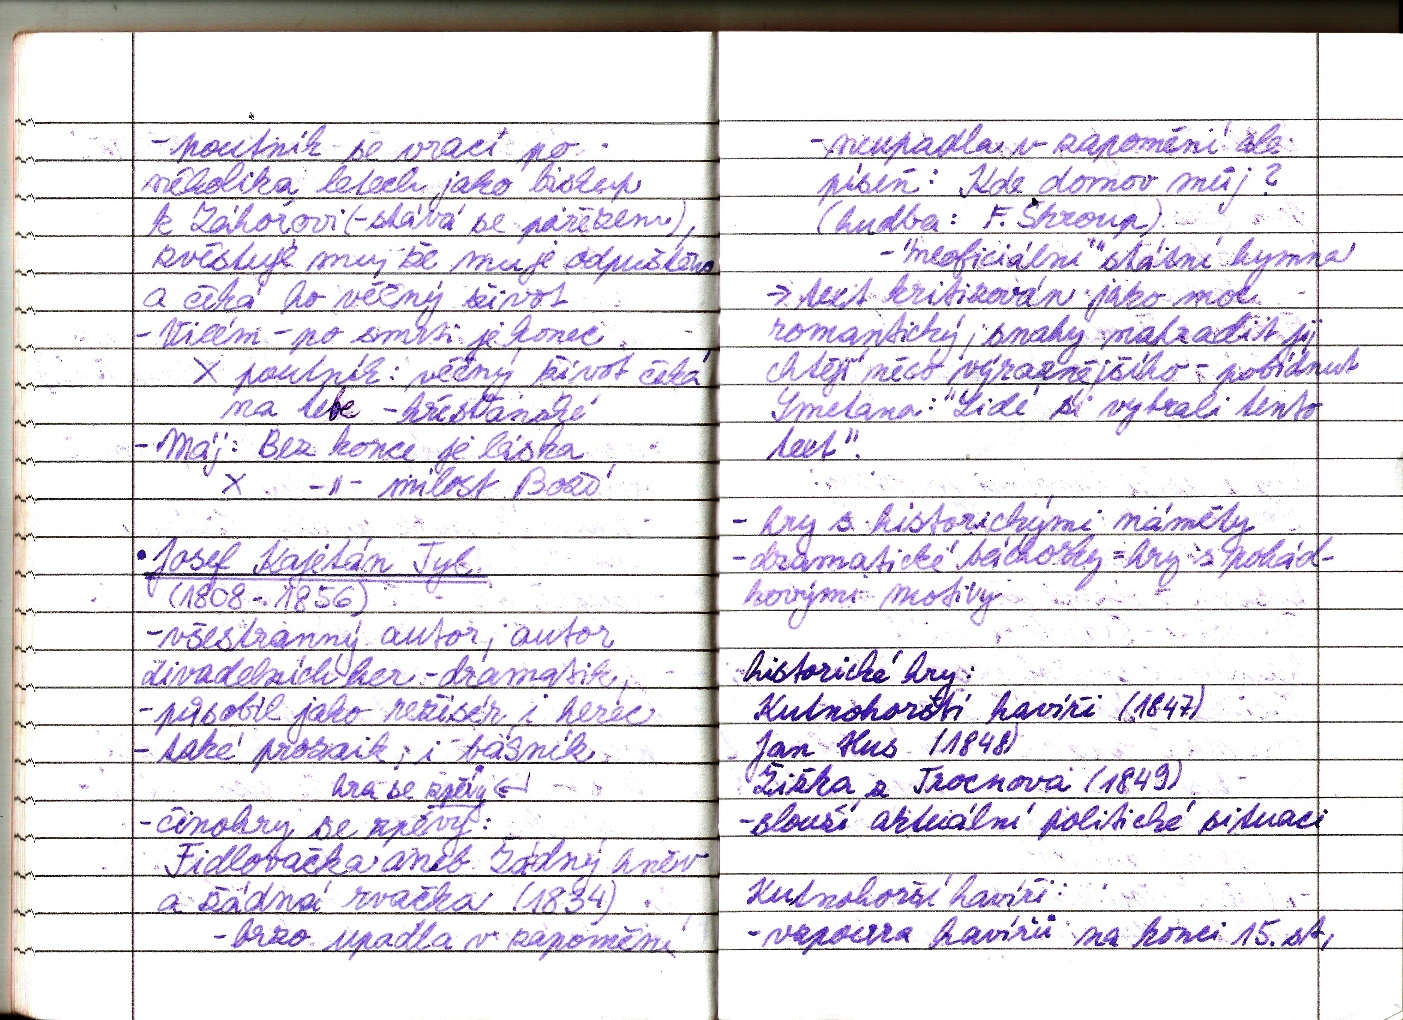 - poutník se vrací po
několika letech jako biskup
k Záhořovi (- stává se pařezem),
zvěstuje muj že mu je odpuštěno
a čeká ho věčný život
- Vilém - po smrti je konec
X poutník: věčný život čeká
na tebe - křesťanské
- Máj: Bez konce je láska
X -"- milost Boží
• Josef Kajetán Tyl
(1808 - 1856)
- všestranný autor, autor
divadelních her - dramatik,
- působil jako režisér i herec
- také prozaik; i básník
hra se zpěvy ↵
- činohry se zpěvy:
Fidlovačka aneb Žádný hněv
a žádná rvačka (1834)
- brzo upadla v zapomění
- neupadla v zapomění ale
píseň: Kde domov můj?
(hudba: F. Škroup)
- "neoficiální" státní hymna
→ text kritizován jako moc
romantický, snahy nahradit jij
chtějí něco výraznějšího - pobídnut
Smetana: "Lidé si vybrali tento
text".
- hry s historickými náměty
- dramatické báchorky = hry s pohád-
kovými motivy
historické hry:
Kutnohorští havíři (1847)
Jan Hus (1848)
Žižka z Trocnova (1849)
- slouží aktuální politické situaci
Kutnohorší havíři:
- vzpoura havířů na konci 15. st,